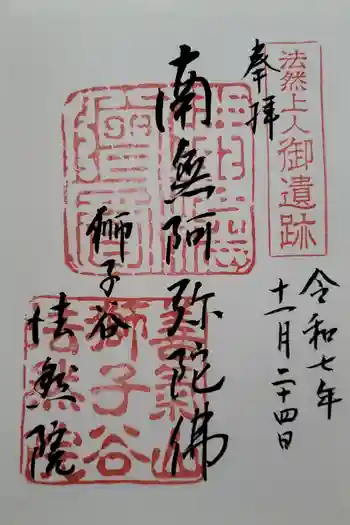 奉拝
法然上人御遺跡
令和七年
十一月二十四日
南無阿弥陀佛
獅子谷
法然院
善氣山
獅子谷
法然院